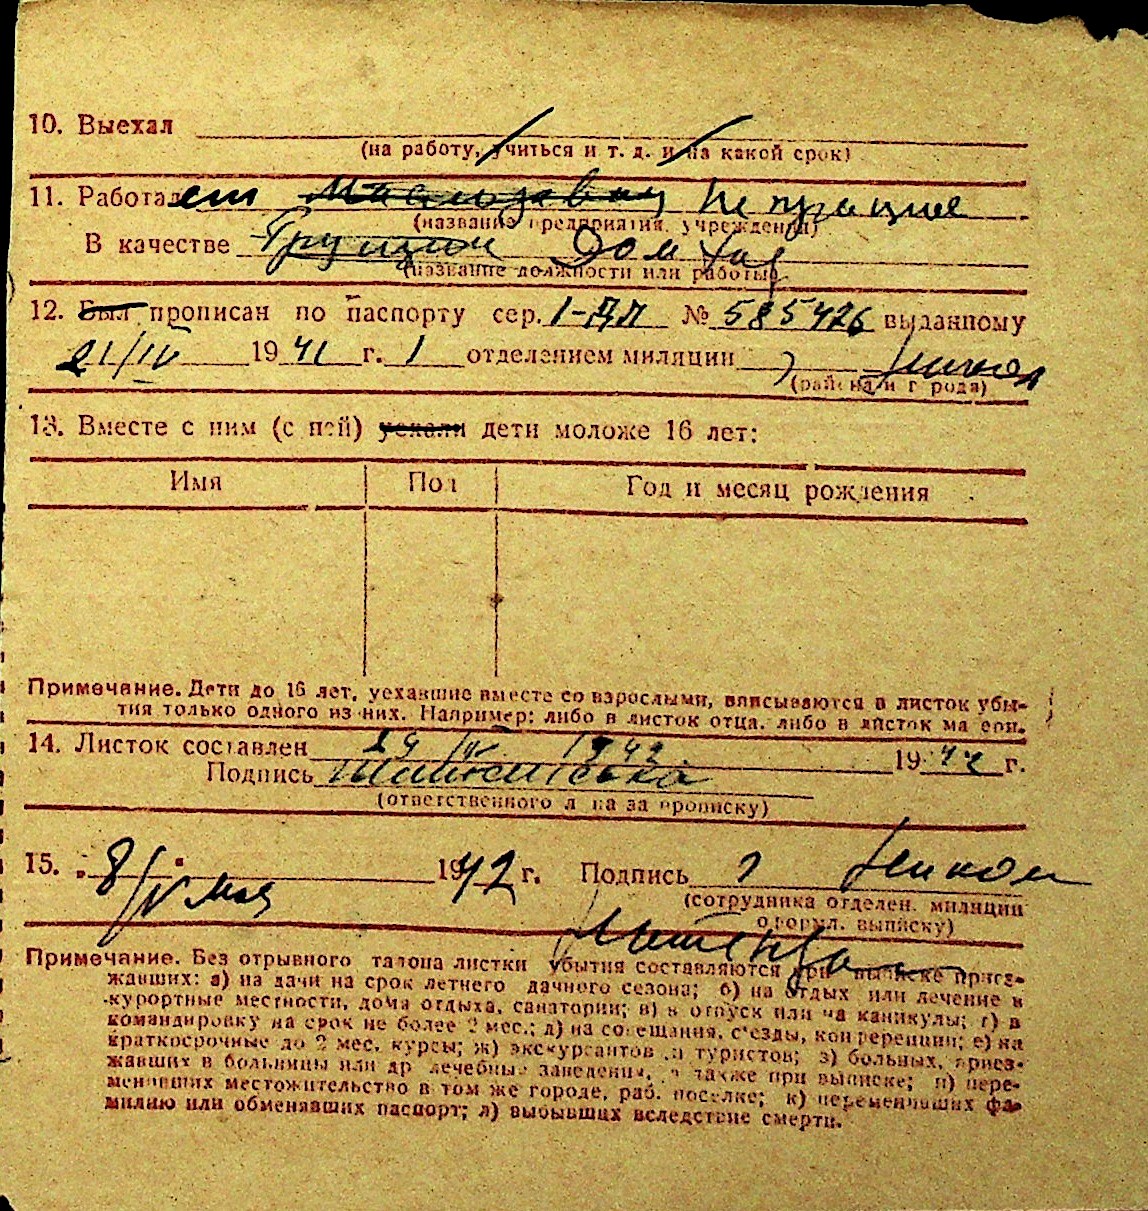 10. Выехал
(на работу, учиться и т. д. и на какой срок)
11. Работает
(название предприятия, учреждения)
В качестве Дом хаз
(название должности или работы)
12. Был прописан по паспорту сер. 1-ДП № 585426 выданному
21/IV 1941 г. 1 отделением милиции г
(района и города)
13. Вместе с ним (с ней) уехали дети моложе 16 лет:
Имя Пол Год и месяц рождения
Примечание. Дети до 16 лет, уехавшие вместе со взрослыми, вписываются в листок убы-
тия только одного из них. Например: либо в листок отца, либо в листок матери.
14. Листок составлен 29 IV 1942 1942 г.
Подпись
(ответственного лица за прописку)
15. 8/V мая 1942 г. Подпись
(сотрудника отделен. милиции
оформл. выписку)
Примечание. Без отрывного талона листки убытия составляются при выписке приез-
жавших: а) на дачи на срок летнего дачного сезона; б) на отдых или лечение в
курортные местности, дома отдыха, санатории; в) в отпуск или на каникулы; г) в
командировку на срок не более 2 мес.; д) на совещания, съезды, конференции; е) на
краткосрочные до 2 мес. курсы; ж) экскурсантов и туристов; з) больных, приез-
жавших в больницы или др лечебные заведения, а также при выписке; и) пере-
менивших местожительство в том же городе, раб. поселке; к) переменивших фа-
милию или обменявших паспорт; л) выбывших вследствие смерти.